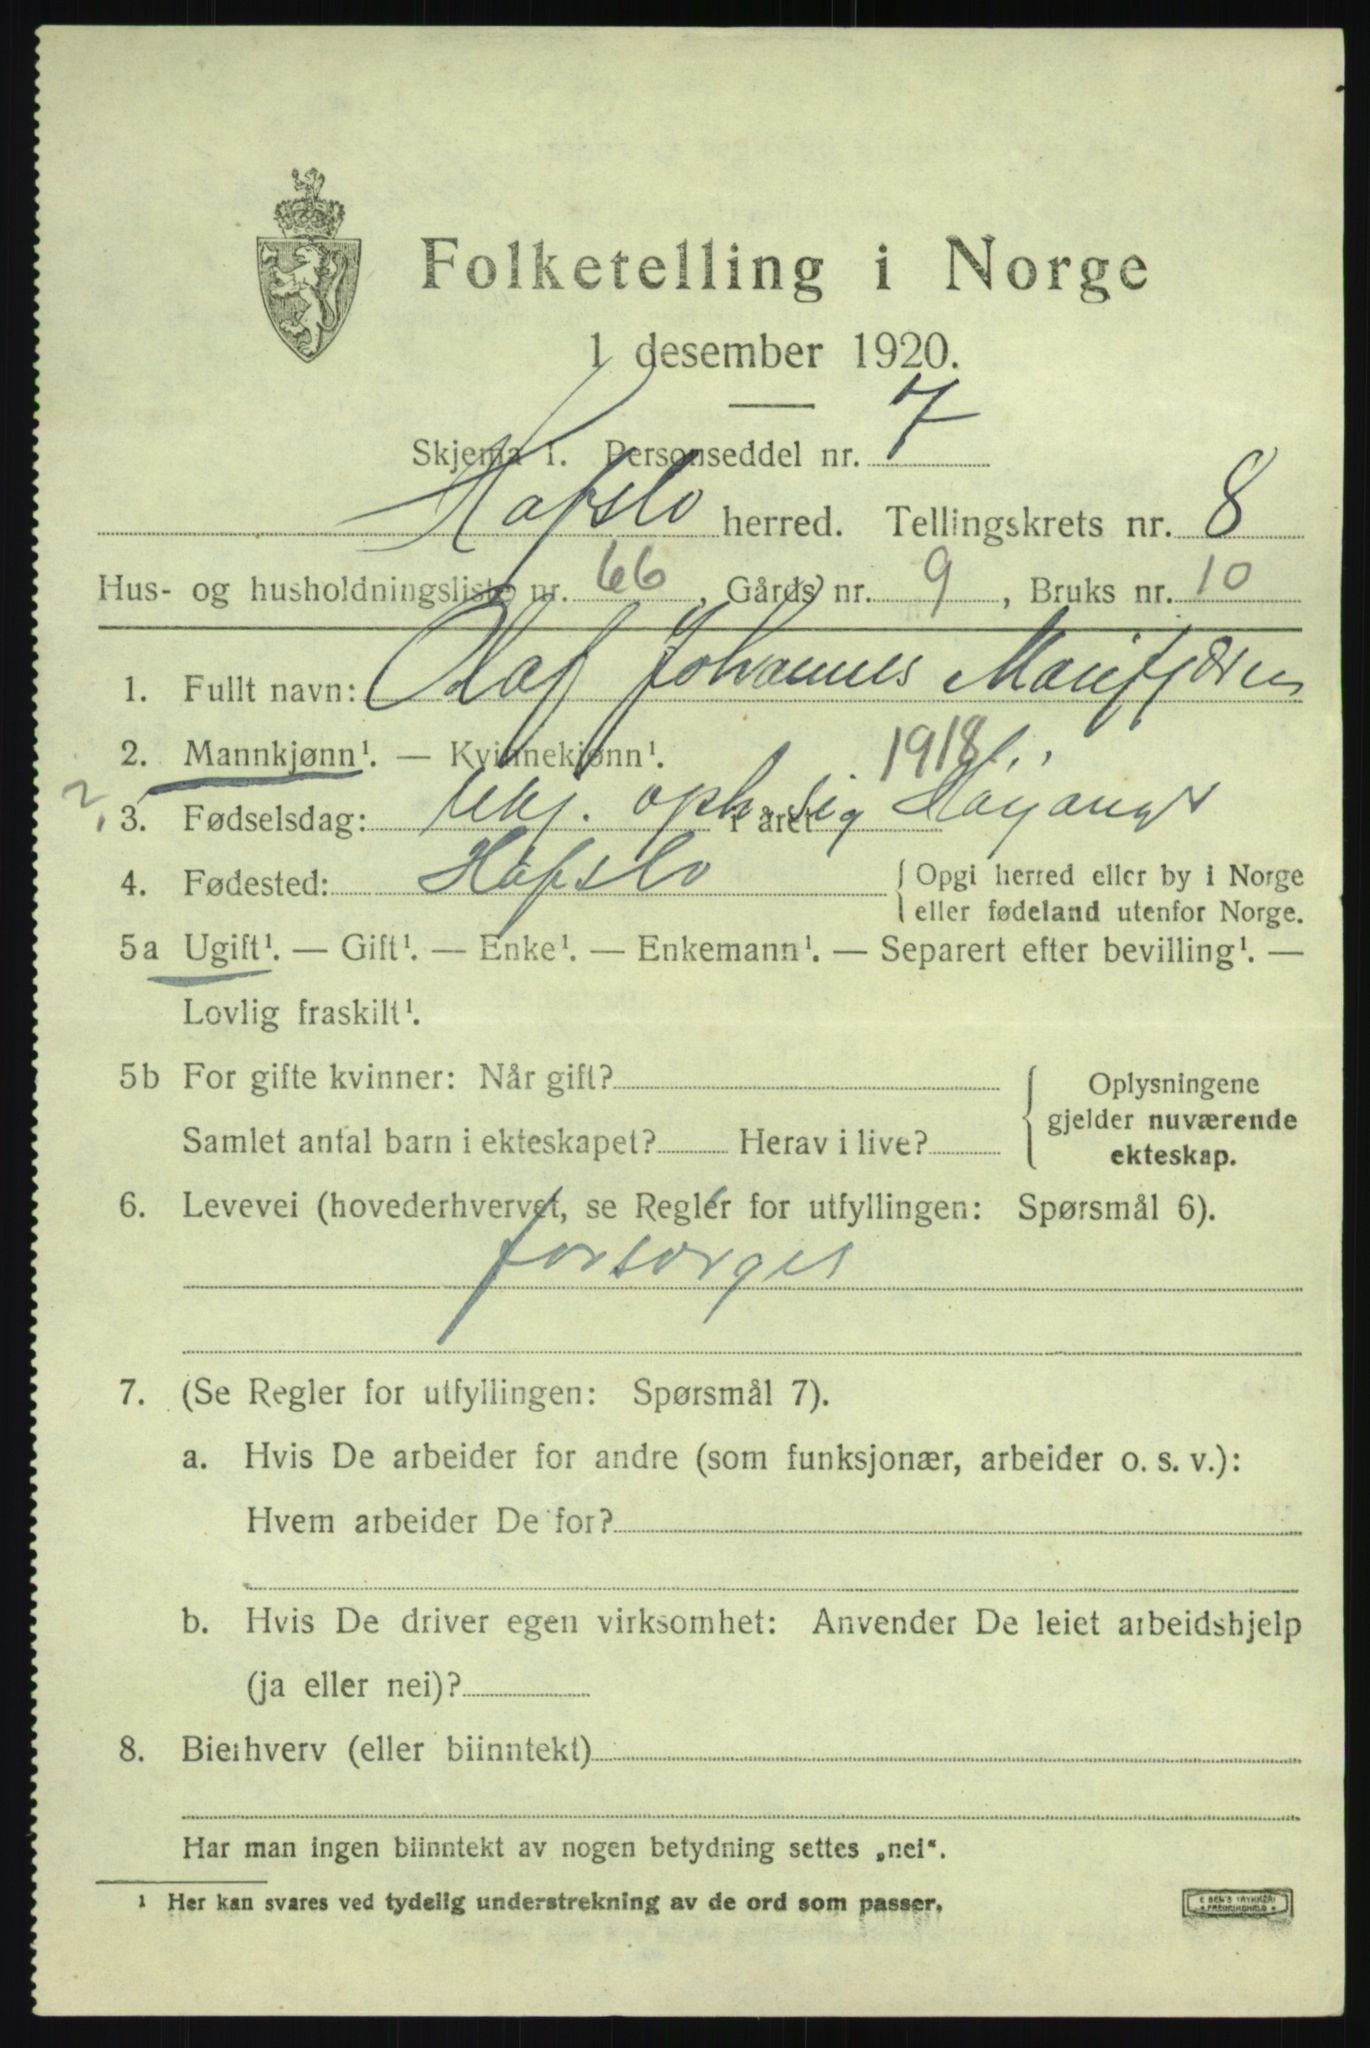 Folketelling i Norge
1 desember 1920.
Skjema 1. Personseddel nr. 7
Hafslo herred. Tellingskrets nr. 8
Hus- og husholdningsliste nr. 66, Gårds nr. 9, Bruks nr. 10
1. Fullt navn: Olaf Johannes Marifjæren
2. Mannkjønn¹. — Kvinnekjønn¹.
1918
? 3. Fødselsdag: ukj. oph. sig i året Høyanger
4. Fødested: Hafslo { Opgi herred eller by i Norge
eller fødeland utenfor Norge.
5a Ugift¹. — Gift¹. — Enke¹. — Enkemann¹. — Separert efter bevilling¹. —
Lovlig fraskilt¹.
5b For gifte kvinner: Når gift?
Samlet antal barn i ekteskapet? Herav i live?
{ Oplysningene
gjelder nuværende
ekteskap.
6. Levevei (hovederhvervet, se Regler for utfyllingen: Spørsmål 6).
forsørges
7. (Se Regler for utfyllingen: Spørsmål 7).
a. Hvis De arbeider for andre (som funksjonær, arbeider o. s. v.):
Hvem arbeider De for?
b. Hvis De driver egen virksomhet: Anvender De leiet arbeidshjelp
(ja eller nei)?
8. Bierhverv (eller biinntekt)
Har man ingen biinntekt av nogen betydning settes „nei“.
¹ Her kan svares ved tydelig understrekning av de ord som passer.